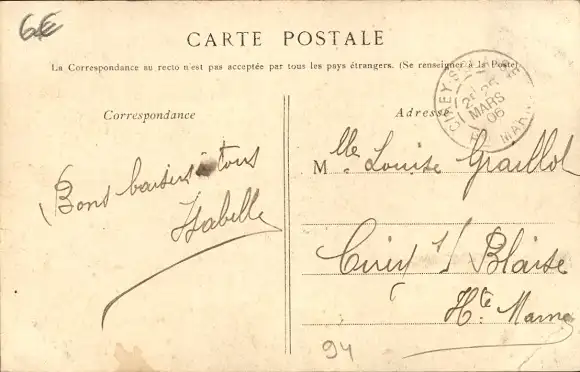 6€
CARTE POSTALE
La Correspondance au recto n'est pas acceptée par tous les pays étrangers. (Se renseigner à la Poste)
Correspondance
Adresse
CIREY-S
25
MARS
06
MARNE
Mlle Louise Graillot
Bons baisers à tous
Isabelle
Cirey s/ Blaise
Hte Marne
94